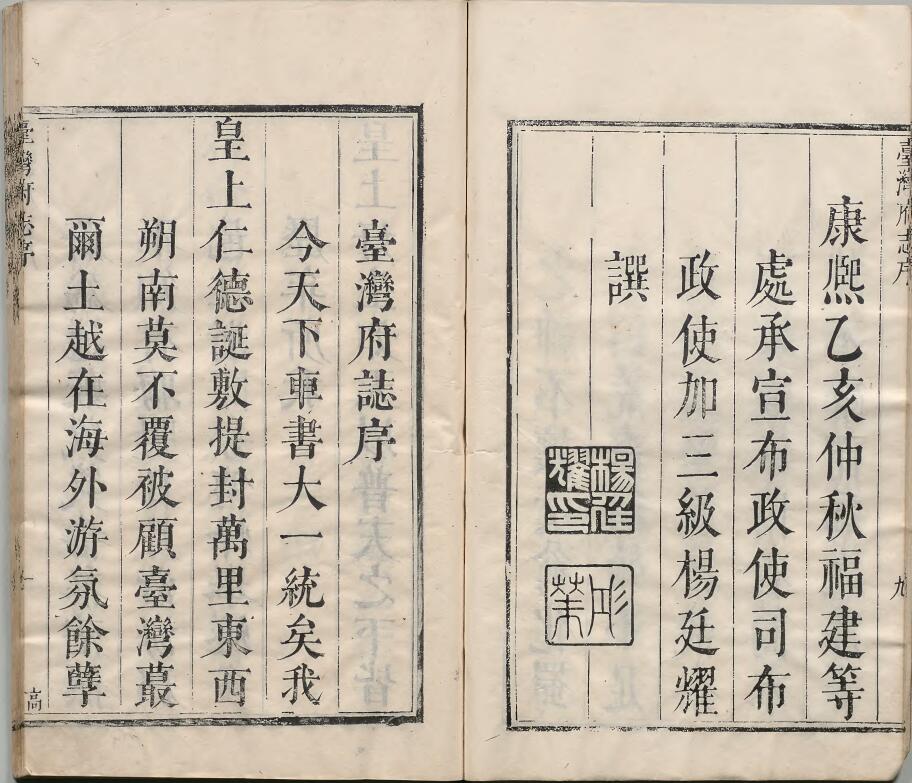 臺灣府志序
九
康熙乙亥仲秋福建等
處承宣布政使司布
政使加三級楊廷耀
譔
楊廷
耀印
臺灣府誌序
今天下車書大一統矣我
皇上仁德誕敷提封萬里東西
朔南莫不覆被顧臺灣蕞
爾土越在海外游氛餘孽
臺灣府志序
一
高